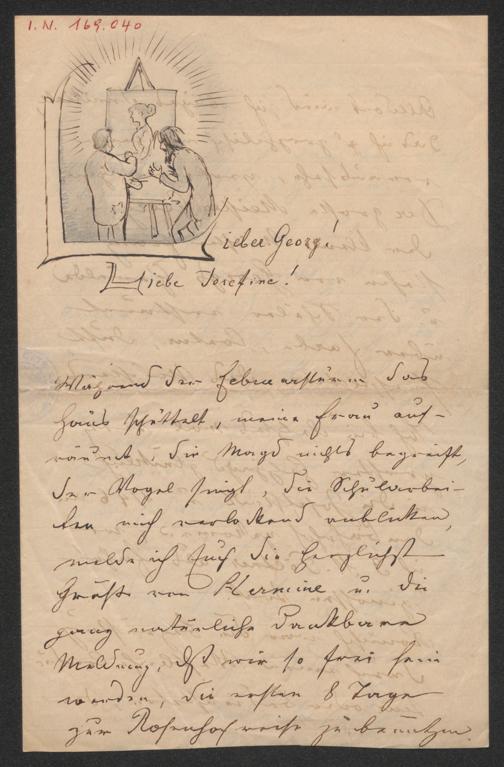 I. N. 169.040
Lieber George!
Liebe Josefine!
Während der Februarsturm das
Haus schüttelt, meine Frau auf-
räumt, die Magd nichts begreift,
der Vogel singt, die Schularbei-
ten mich verlockend anblicken,
melde ich Euch die herzlichst
Grüße von Hermine u. die
ganz natürliche dankbare
Meldung, daß wir so frei sein
werden, die ersten 8 Tage
zur Rosenhofreise zu benutzen.